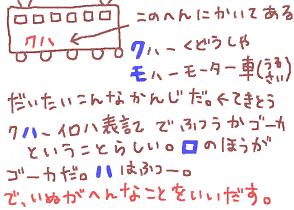 このへんにかいてある
クハ
クハーくどうしゃ
モハーモーター車(うるさい)
だいたいこんなかんじだ。←てきとう
クハーイロハ表記でふつうかゴーカ
ということらしい。ロのほうが
ゴーカだ。ハはふつー。
で、いぬがへんなことをいいだす。